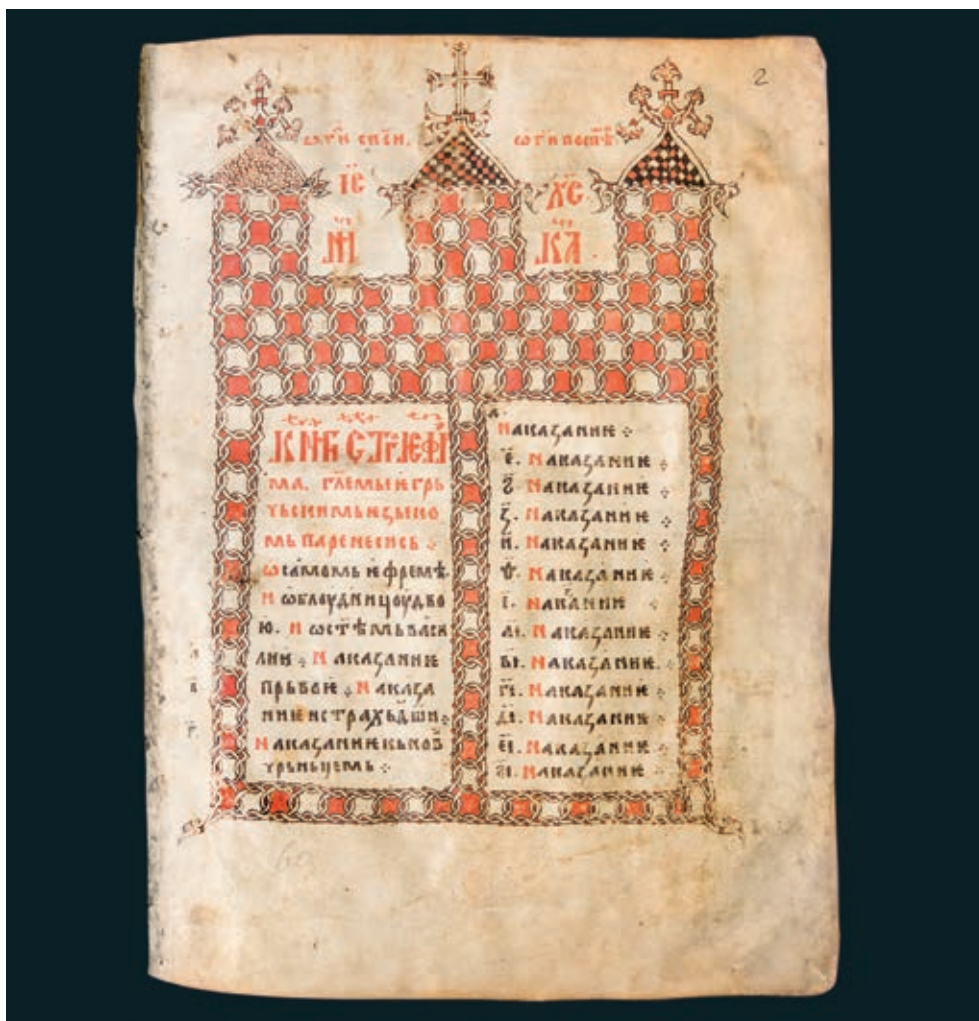 2
І҃С Х҃С
НИ КА
КНИГ СТ҃ГО ЕФРѢ
ма. гл҃емыꙗ гръ
чьскимь ѥзыко
мь паренесись ⁘
ѡ самомь ѥфремѣ.
и ѡ блоудници оу дво
ю. и ѡ ст҃ѣмь васи
лии ⁘ Наказаниѥ
прьвоѥ ⁘ Наказа
ниѥ ѡ страсѣ д҃ши ⁘
Наказаниѥ къ нов
чрьньцемь ⁘
в҃.
г҃.
д҃.
Наказаниѥ ⁘
е҃. Наказаниѥ ⁘
ѕ҃. Наказаниѥ ⁘
з҃. Наказаниѥ ⁘
и҃. Наказаниѥ ⁘
ѳ҃. Наказаниѥ ⁘
і҃. Наказании ⁘
аі҃. Наказаниѥ ⁘
ві҃. Наказаниѥ ⁘
гі҃. Наказаниѥ ⁘
ді҃. Наказаниѥ ⁘
еі҃. Наказаниѥ ⁘
ѕі҃. Наказаниѥ ⁘